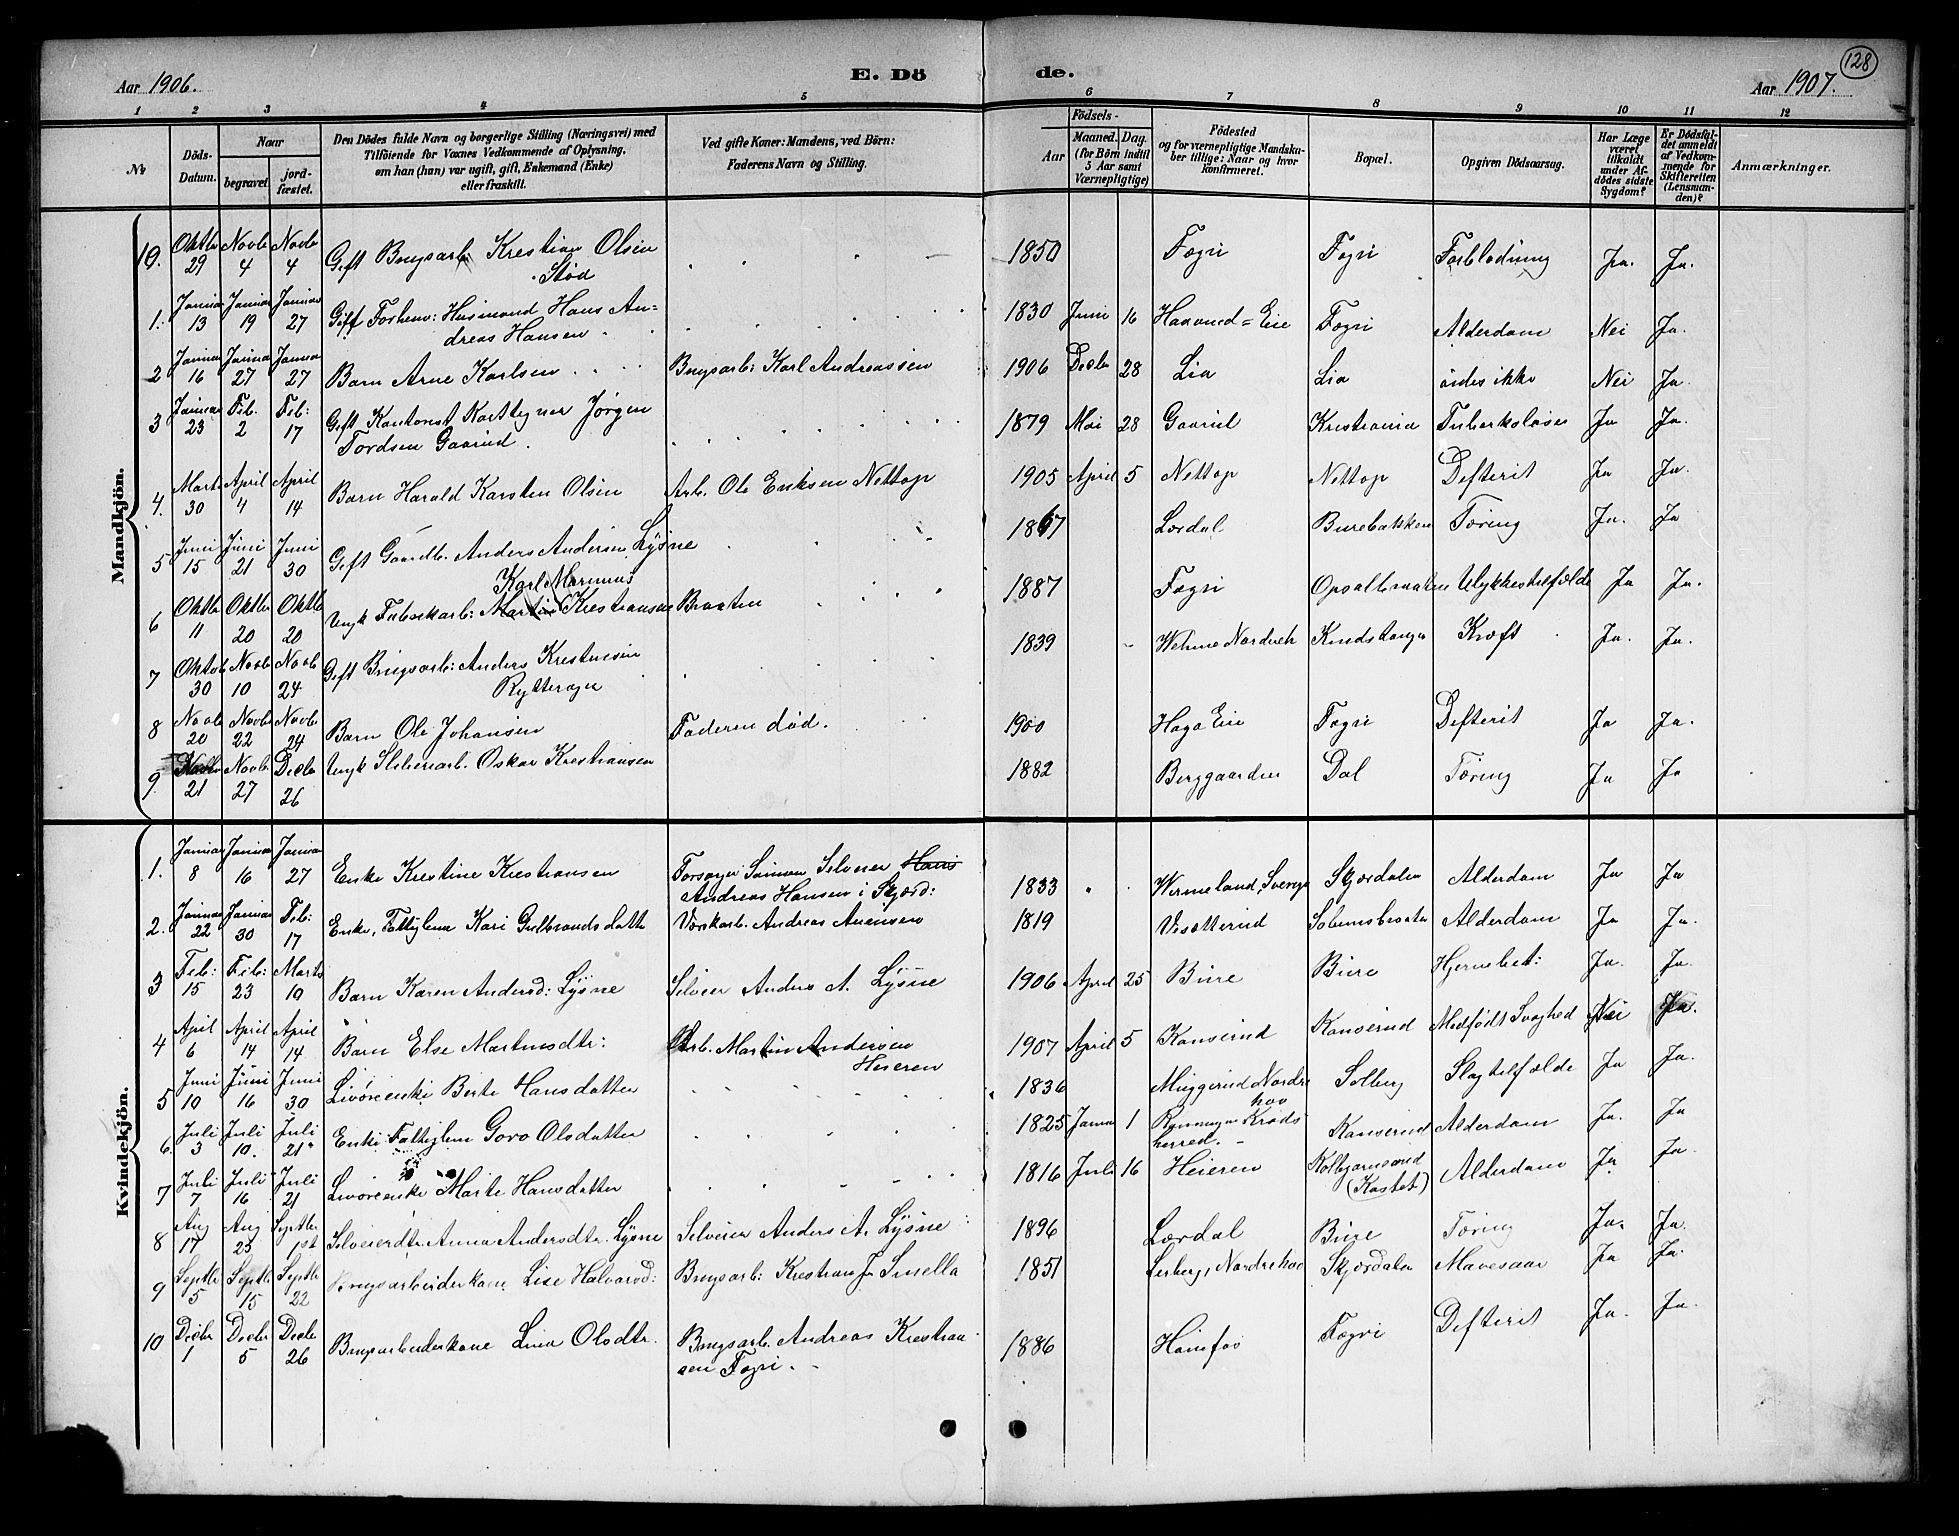 128
Aar 1906.
E. Dö
de.
Aar 1907.
1 2 3 4 5 6 7 8 9 10 11 12
No
Döds-Datum.
Naar
begravet.
jord-fæstet.
Den Dödes fulde Navn og borgerlige Stilling (Næringsvei) med
Tilföiende for Voxnes Vedkommende af Oplysning,
om han (hun) var ugift, gift, Enkemand (Enke)
eller fraskilt.
Ved gifte Koner: Mandens, ved Börn:
Faderens Navn og Stilling.
Födsels-
Aar
Maaned. Dag.
(for Börn indtil
5 Aar samt
Værnepligtige)
Födested
og for værnepligtige Mandska-
ber tillige: Naar og hvor
konfirmeret.
Bopæl.
Opgiven Dödsaarsag.
Har Læge
været
tilkaldt
under Af-
dödes sidste
Sygdom?
Er Dödsfal-
det anmeldt
af Vedkom-
mende for
Skifteretten
(Lensman-
den)?
Anmærkninger.
Mandkjön.
10. Oktbr 29 Novbr 4 Novbr 4 Gift Brugsarb. Kristian Olsen Stød 1850 Fægri Fægri Forblødning Ja. Ja.
1. Januar 13 Januar 19 Januar 27 Gift Forhenv: Husmand Hans An-
dreas Hansen 1830 Juni 16 Haavind=Eie Fægri Alderdom Nei Ja.
2 Januar 16 Januar 27 Januar 27 Barn Arne Karlsen Brugsarb: Karl Andreassen 1906 Decbr 28 Lia Lia vides ikke Nei Ja.
3 Januar 23 Feb. 2 Feb: 17 Gift Kontorist Karttegner Jörgen
Tordsen Gaarud. 1879 Mai 28 Gaarud Kristiania Tuberkulose Ja Ja.
4. Marts 30 April 4 April 14 Barn Harald Karsten Olsen Arb. Ole Eriksen Nettop 1905 April 5 Nettop Nettop Defterit Ja Ja.
5 Juni 15 Juni 21 Juni 30 Gift Gaardb. Anders Andersen Lysne 1867 Lærdal Burebakken Tæring Ja. Ja
Karl Marinus
6 Oktbr 11 Oktbr 20 Oktbr 20 Ungk Fabrikarb: Martin Kristiansen Braaten 1887 Fægri Opsalbraaten Ulykkestilfælde Ja Ja.
7 Oktob 30 Novb 10 Novb 24 Gift Brugsarb: Anders Kristensen
Rytterager 1839 Kraft Ja. Ja.
8 Novb 20 Novbr 22 Novbr 24 Barn Ole Johansen Faderen død. 1900 Haga Eie Fægri Defterit Ja Ja.
9. Novbr 21 Novbr 27 Decbr 26 Ungk Sliberiarb. Oskar Kristiansen 1882 Berggaarden Dal Tæring Ja Ja
Kvindekjön.
1. Januar 8 Januar 16 Januar 27 Enke Kristine Kristiansen Forsørger Sønnen Selveier Hans
Andreas Hansen i Skjærd: 1833 Wermeland, Sverige Skjærdalen Alderdom Ja Ja
2. Januar 22 Januar 30 Feb: 17 Enke, Fattiglem Kari Gulbrandsdatter Værkarb. Andreas Arnesen 1819 Visætterud Solumsbraaten Alderdom Ja Ja.
3 Feb: 15 Feb: 23 Marts 10 Barn Karen Andersd: Lysne Selveier Anders A. Lysne 1906 April 25 Bure Bure Hjernebet: Ja. Ja.
4 April 6 April 14 April 14 Barn Else Martinsdtr: Arb. Martin Andersen
Heieren 1907 April 5 Kanserud Kanserud Medfødt Svaghed Nei Ja.
5 Juni 10 Juni 16 Juni 30 Livøreenke Berte Hansdatter 1836 Muggerud Nordre
hov Solberg Slagtilfælde Ja Ja.
6. Juli 3 Juli 10. Juli 21 Enke Fattiglem Goro Olsdatter 1825 Januar 1 Krøds
herred. Kanserud Alderdom Ja. Ja
7 Juli 7 Juli 16 Juli 21 Livøreenke Marte Hansdatter 1816 Juli 16 Heieren Kolbjørnsrud
(Kastet) Alderdom Ja Ja.
8 Aug 17 Aug 25 Septbr 1st Selveierdtr Anna Andersdtr. Lysne Selveier Anders A. Lysne 1896 Lærdal Bure Tæring Ja. Ja.
9 Septbr 5 Septbr 15 Septbr 22 Brugsarbeiderkone Lise Halvorsd: Brugsarb: Kristian J. Smella 1851 Lerberg, Nordrehov Skjærdalen Mavesaar Ja Ja.
10 Decbr 1 Decbr 5 Decbr 26 Brugsarbeiderkone Lina Olsdtr. Brugsarb. Andreas Kristian
sen Fægri. 1886 Hønefos Fægri Defterit Ja. Ja.